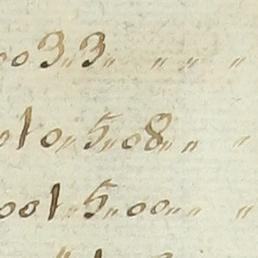 003〃3〃 〃 〃 〃
010〃5〃08〃〃 〃
001〃5〃00〃〃 〃